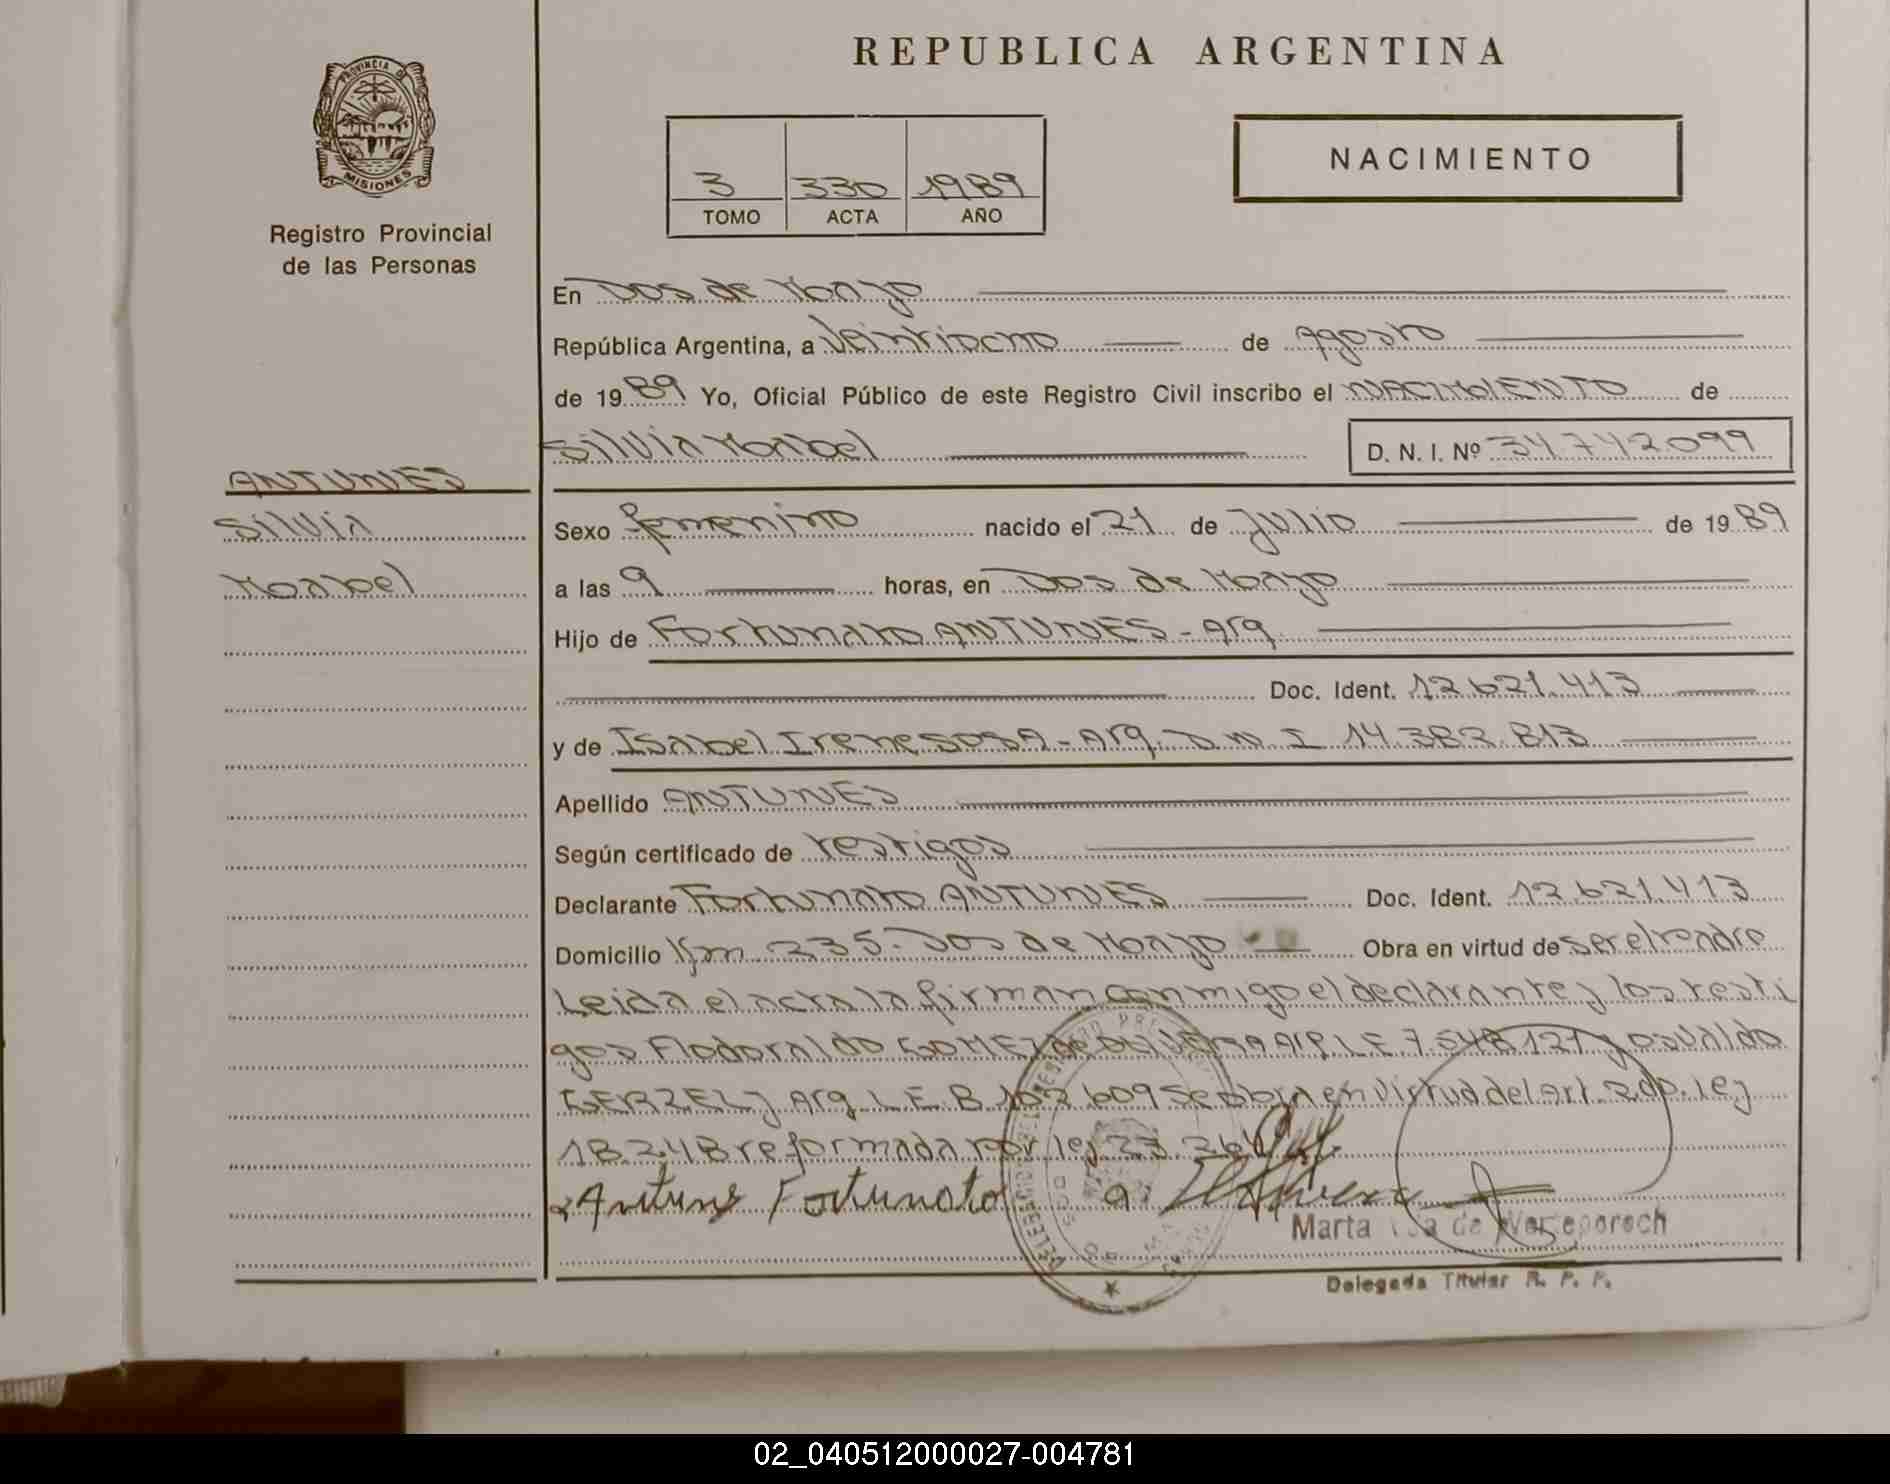 REPUBLICA ARGENTINA
PROVINCIA DE
MISIONES
Registro Provincial
de las Personas
3 330 1989
TOMO ACTA AÑO
NACIMIENTO
En Dos de Mayo
República Argentina, a Veintiocho de Agosto
de 1989 Yo, Oficial Público de este Registro Civil inscribo el NACIMIENTO de
Silvia Mabel D. N. I. Nº 34.742.099
ANTUNES
Silvia
Mabel
Sexo femenino nacido el 21 de Julio de 1989
a las 9 horas, en Dos de Mayo
Hijo de Fortunato ANTUNES - Arg
Doc. Ident. 12.621.413
y de Isabel Irene SOSA - Arg. D.N.I 14.382.813
Apellido ANTUNES
Según certificado de testigos
Declarante Fortunato ANTUNES Doc. Ident. 12.621.413
Domicilio Km 235. Dos de Mayo Obra en virtud de ser el padre
Leida el acta la firman conmigo el declarante y los testi
gos Flodoraldo GOMEZ de Arg. L.E 7.548.121 y Osvaldo
GERZELJ Arg. L.E. 8.102.609 Se obra en virtud del art. 2do. Ley
18.248 reformada por ley 23.264
Antunes Fortunato
Marta de
Delegada Titular R. P. P.
02_040512000027-004781